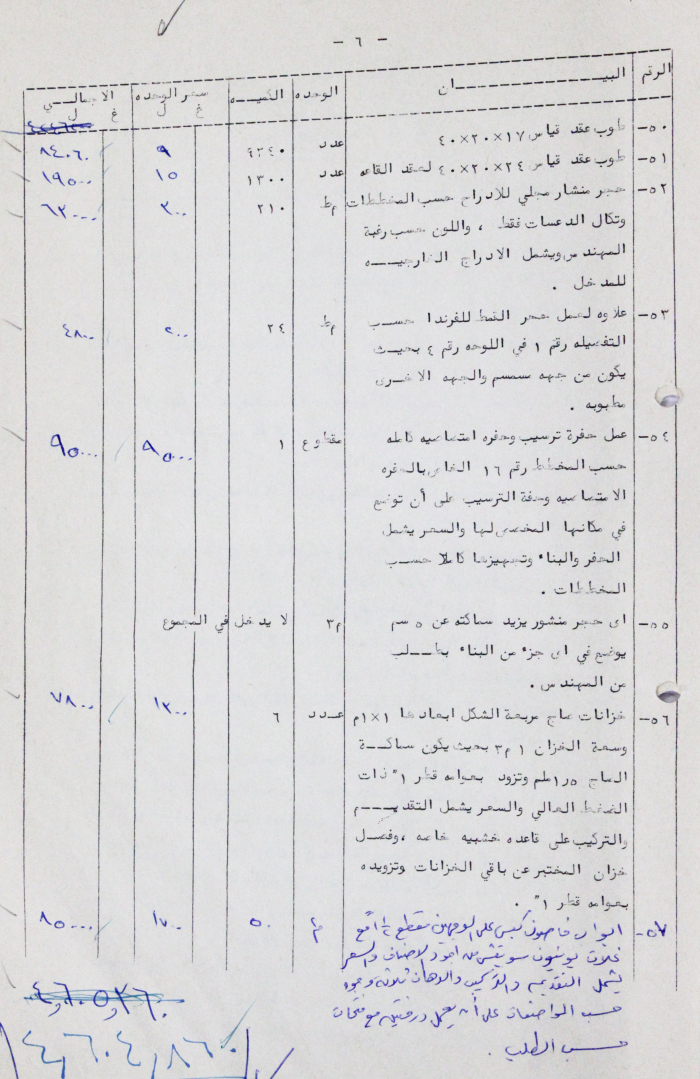 - ٦ -
الرقم البيـــــــان الوحده الكميــه سعر الوحده الاجمالـــي
غ ل غ ل
٥٠- طوب عقد قياس ١٧×٢٠×٤٠ عدد ٩٣٤٠ ٩ ٨٤٠٦٠
٥١- طوب عقد قياس ٢٤×٢٠×٤٠ لعقد القاعه عدد ١٣٠٠ ١٥ ١٩٥٠٠
٥٢- حجر منشار مجلي للادراج حسب المخططات م ط ٢١٠ ٣٠٠ ٦٣٠٠٠
وتكال الدعسات فقط ، واللون حسب رغبة
المهندس ويشمل الادراج الخارجيـــه
للمدخل .
٥٣- علاوه لعمل حجر النمط للفرندا حسـب م ط ٢٤ ٢٠٠ ٤٨٠٠
التفصيله رقم ١ في اللوحه رقم ٤ بحيـث
يكون من جهه سمسم والجهه الاخـرى
مطبوبه .
٥٤- عمل حفرة ترسيب وحفره امتصاصيه كامله مقطوع ١ ٩٥٠٠٠ ٩٥٠٠٠
حسب المخطط رقم ١٦ الخاص بالحفره
الامتصاصيه وحفة الترسيب على أن توضع
في مكانها المخصص لها والسعر يشمل
الحفر والبناء وتجهيزها كاملا حسـب
المخططات .
٥٥- اى حجر منشور يزيد سماكته عن ٥ سم م٣ لا يدخل في المجموع
يوضع في اى جزء من البناء بطــلب
من المهندس .
٥٦- خزانات صاج مربعة الشكل ابعادها ١×١م عـدد ٦ ١٣٠٠ ٧٨٠٠
وسعة الخزان ١ م٣ بحيث يكون سماكــة
الصاج ١٫٥ملم وتزود بعوامه قطر ١" ذات
الضغط العالي والسعر يشمل التقديـــم
والتركيب على قاعده خشبيه خاصه ، وفصـل
خزان المختبر عن باقي الخزانات وتزويده
بعوامه قطر ١" .
٥٧- ابواب كبس على الوجهين مقطع مع م٢ ٥٠ ١٧٠٠ ٨٥٠٠٠
غلات من اجود الاصناف والسعر
يشمل التقديم والتركيب والدهان ثلاثة وجوه
حسب المواصفات على أن يعمل مع فتحات
حسب الطلب .
٤٦٠٤٨٦٠